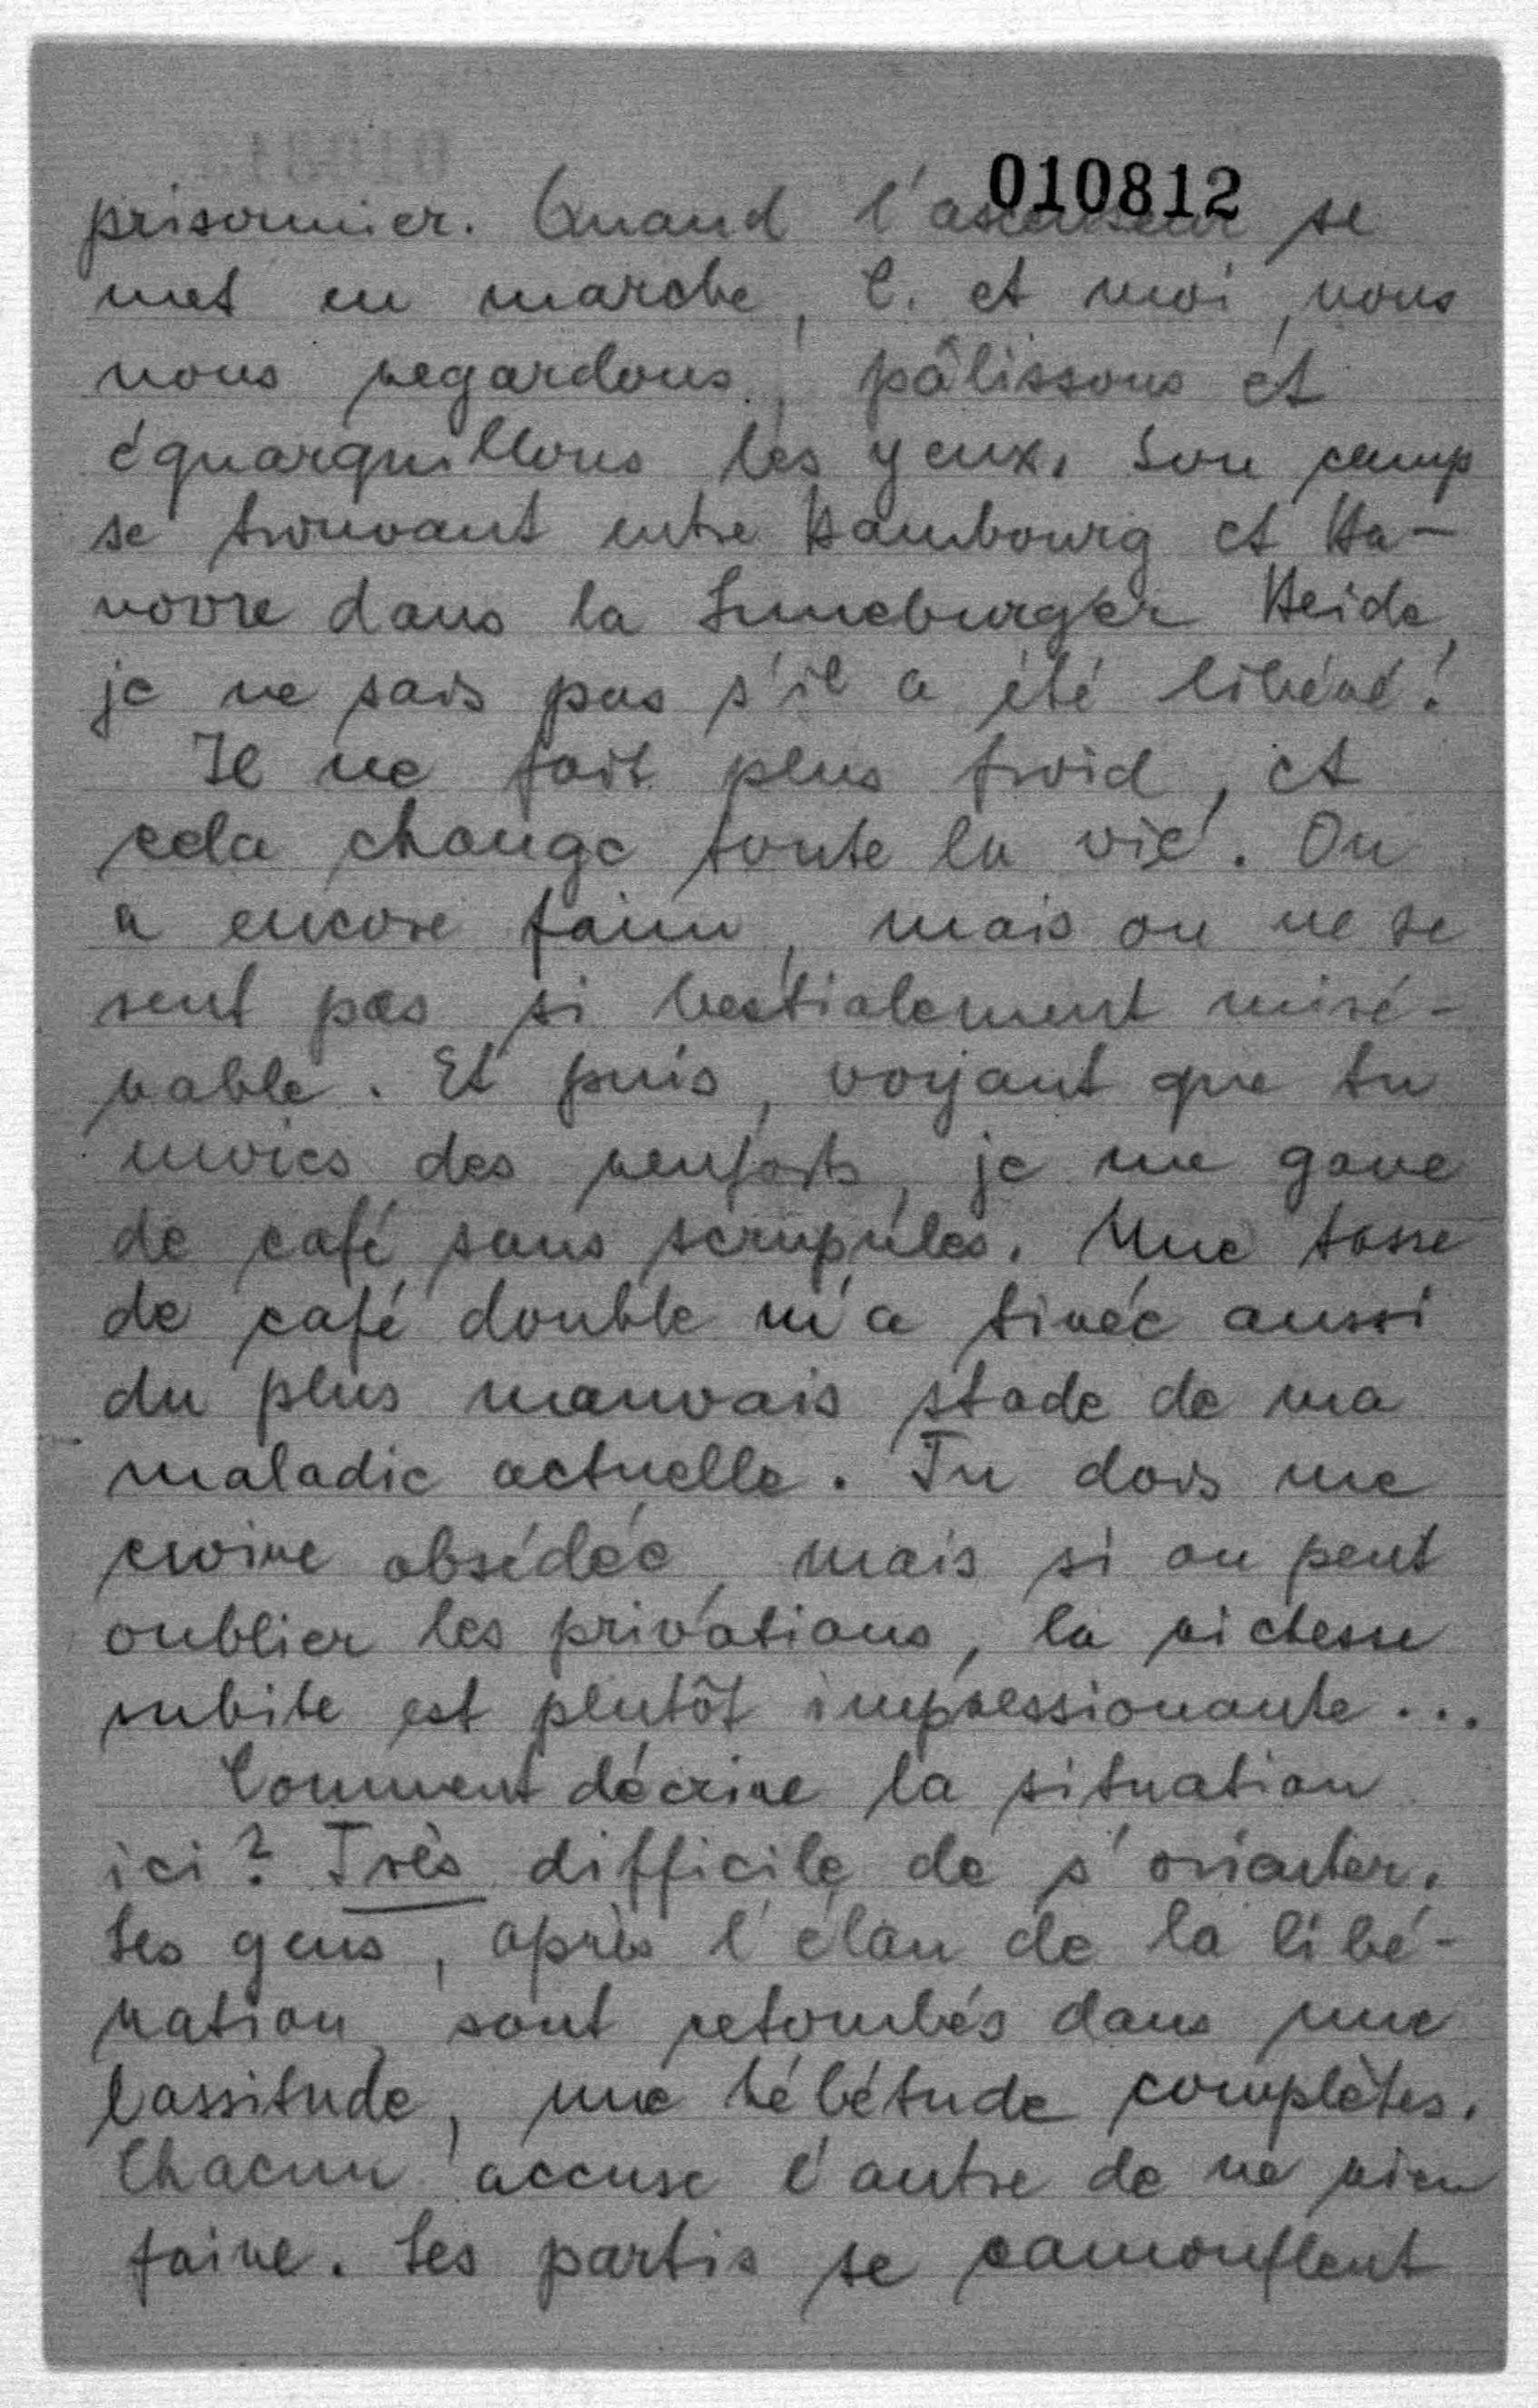 010812
prisonnier. Quand l'ascenseur se
met en marche, C. et moi, nous
nous regardons, pâlissons et
équarquillons les yeux. Son camp
se trouvant entre Hambourg et Ha-
novre dans la Luneburger Heide,
je ne sais pas s'il a été libéré!
Il ne fait plus froid, et
cela change toute la vie. On
a encore faim, mais on ne se
sent pas si bestialement misé-
rable. Et puis, voyant que tu
envoies des renforts, je me gave
de café sans scrupules. Une tasse
de café double m'a tirée aussi
du plus mauvais stade de ma
maladie actuelle. Tu dois me
croire obsédée, mais si on peut
oublier les privations, la richesse
subite est plutôt impressionante...
Comment décrire la situation
ici? Très difficile de s'orienter.
Les gens, après l'élan de la libé-
ration, sont retombés dans une
lassitude, une hébétude complètes.
Chacun accuse l'autre de ne rien
faire. Les partis se camouflent